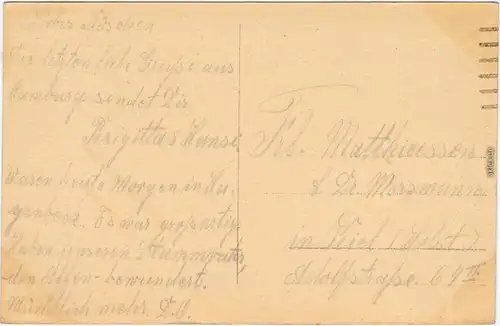 Liebes Röschen
Die letzten liebe Grüße aus
Hamburg sendet Dir
Brigittas Hansi
Waren heute Morgen in Ha-
genbeck. Es war großartig
Haben unseren
den Affen bewundert.
Mündlich mehr. D.O.
Frl. Matthiessen
b Dr. Morsmann
in Kiel / Holst
Adolfstraße 64 III